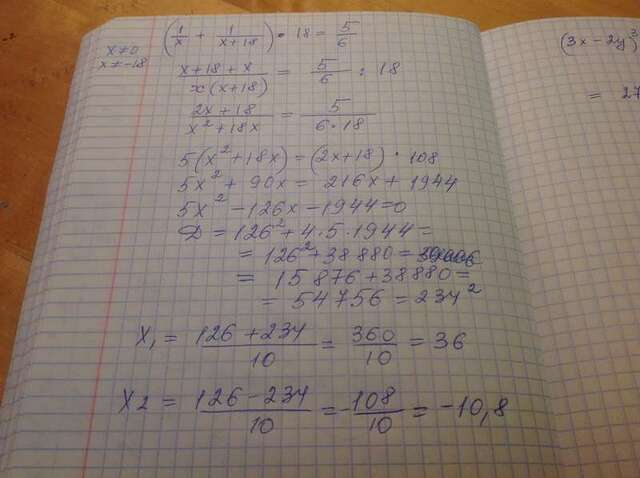 x≠0
x≠-18
(1/x + 1/(x+18)) · 18 = 5/6
(x+18+x)/(x(x+18)) = 5/6 : 18
(2x+18)/(x²+18x) = 5/(6·18)
5(x²+18x) = (2x+18) · 108
5x² + 90x = 216x + 1944
5x² - 126x - 1944 = 0
D = 126² + 4·5·1944 =
= 126² + 38880 =
= 15876 + 38880 =
= 54756 = 234²
x₁ = (126+234)/10 = 360/10 = 36
x2 = (126-234)/10 = -108/10 = -10,8
(3x-2y)³
= 27